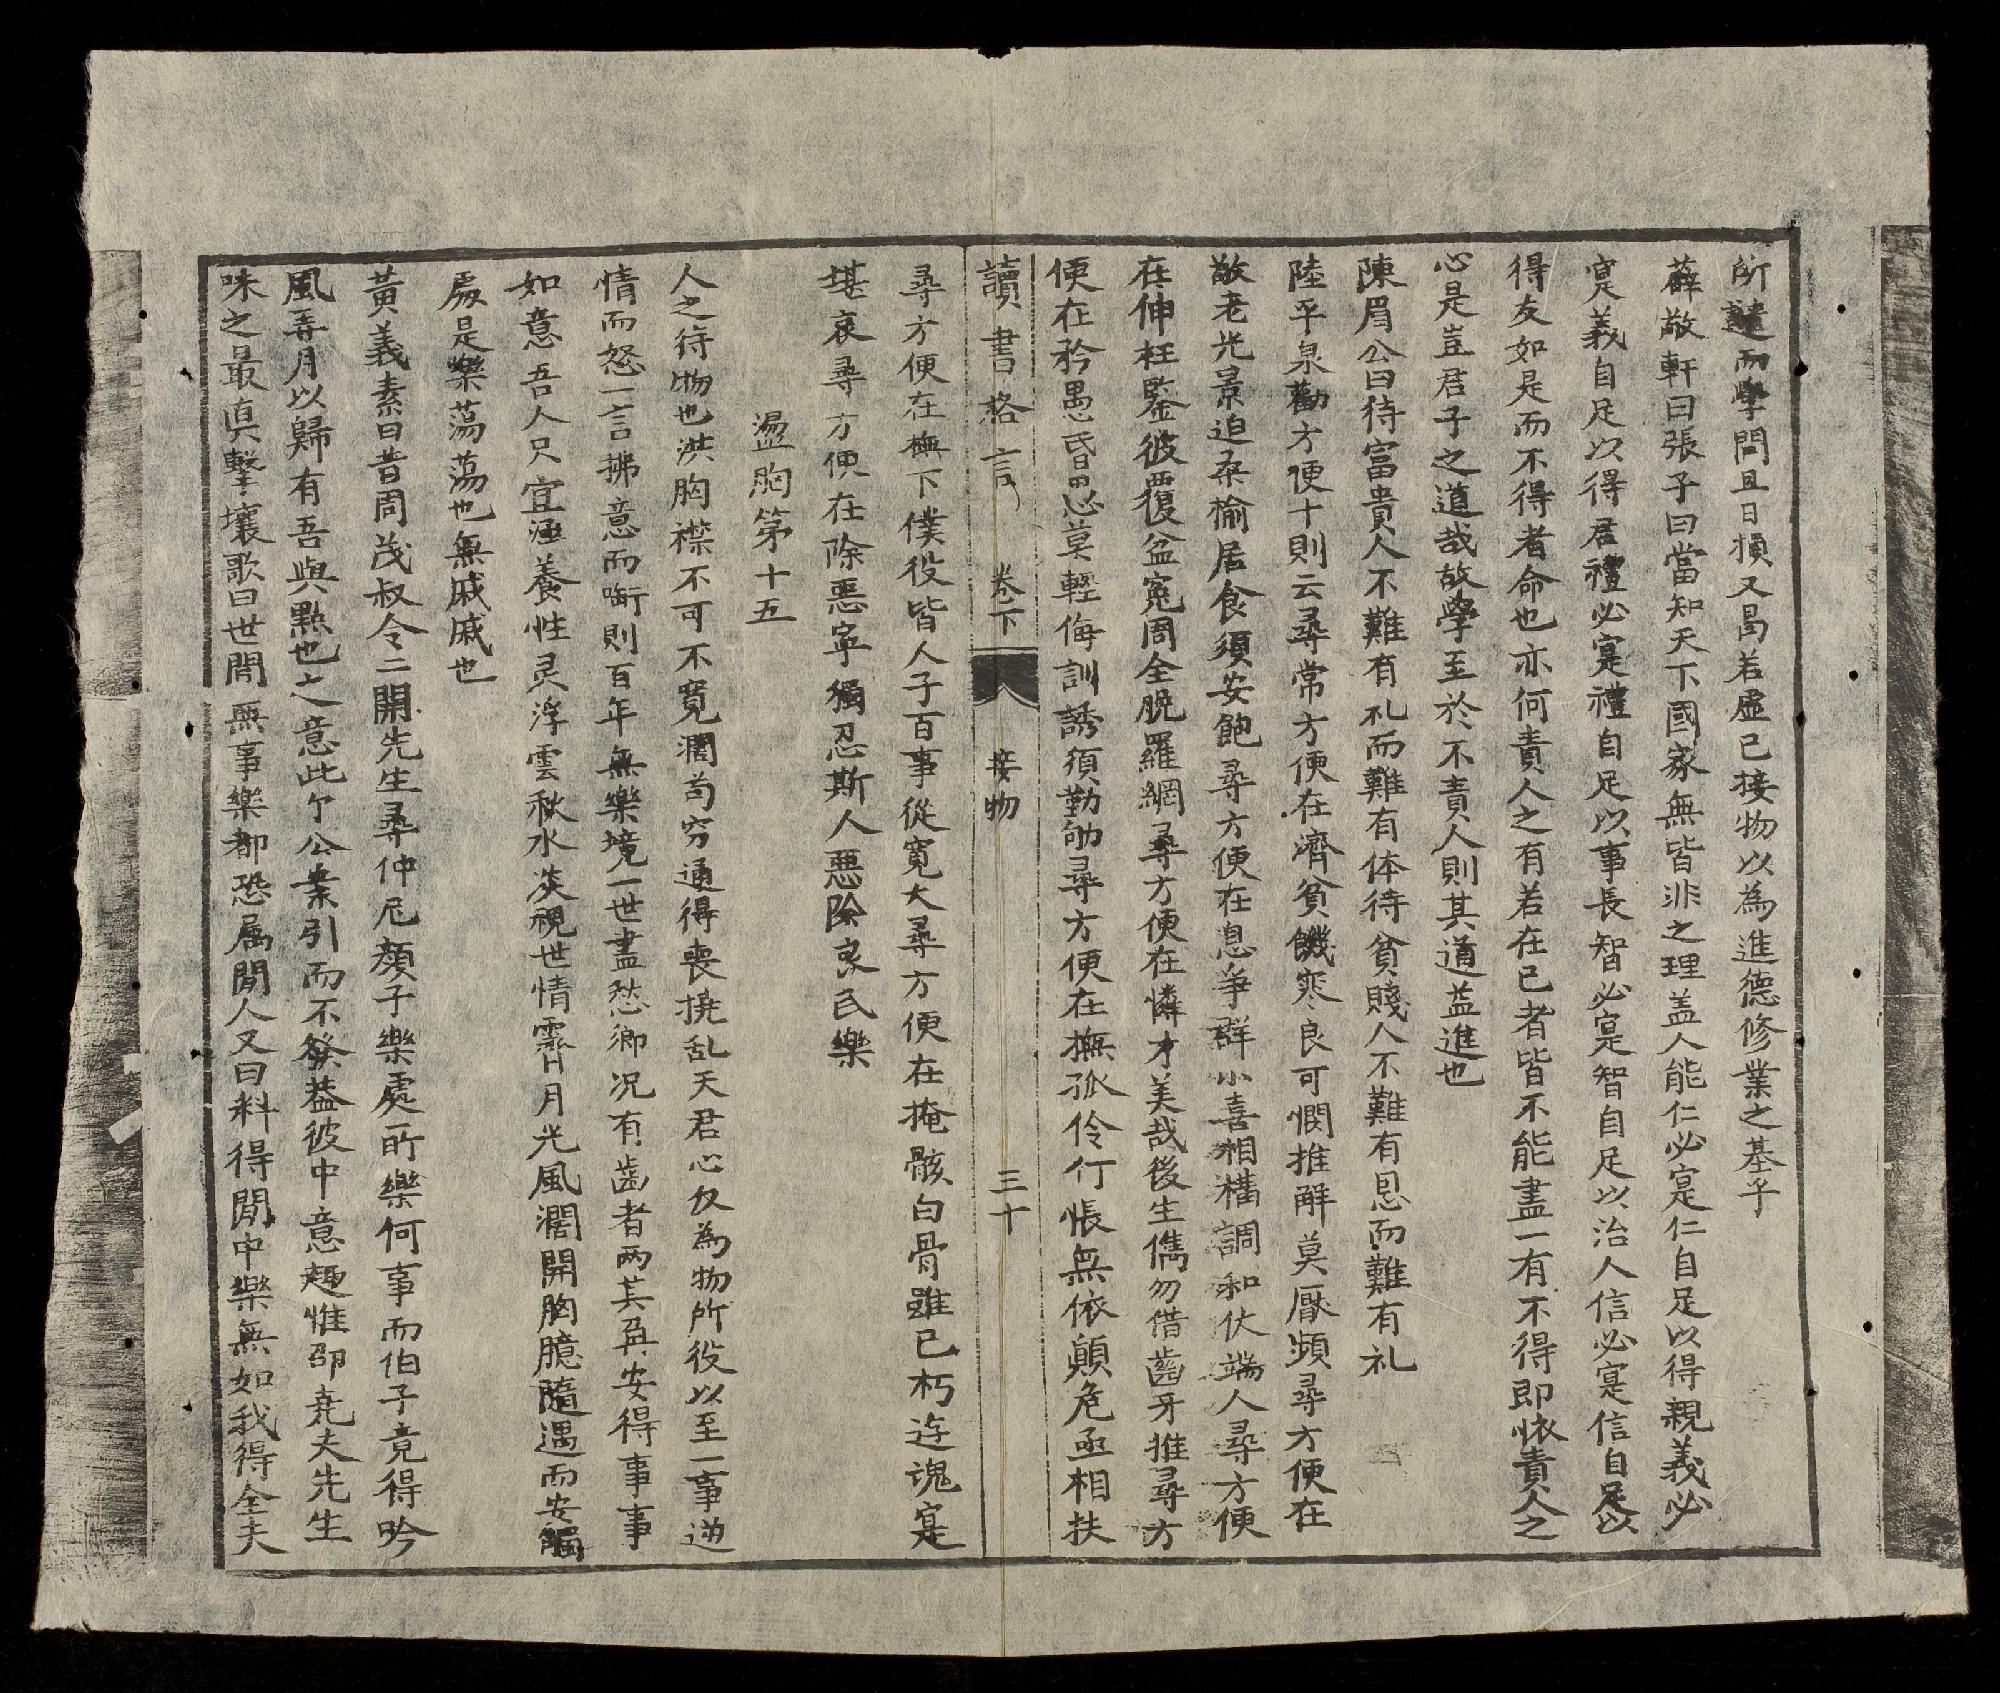 所讉而學問且日損又曷若虛己接物以為進德修業之基乎
薛敬軒曰張子曰當知天下國家無皆非之理盖人能仁必寔仁自足以得親義必
寔義自足以得君禮必寔禮自足以事長智必寔智自足以治人信必寔信自足以
得友如是而不得者命也亦何責人之有若在己者皆不能盡一有不得即懷責人之
心是豈君子之道哉故學至於不責人則其道益進也
陳眉公曰待富貴人不難有礼而難有体待貧賤人不難有恩而難有礼
陸平泉勸方便十則云尋常方便在濟貧饑寒良可憫推解莫厭頻尋方便在
敬老光景迫桑榆居食須安飽尋方便在息争群小喜相構調和伏端人尋方便
在伸枉鑒彼覆盆寃周全脫羅網尋方便在憐才美哉後生儁勿借齒牙推尋方
便在矜愚昏愚莫輕侮訓誘須勤劬尋方便在撫孤伶仃悵無依顛危亟相扶
讀書格言 卷下 接物 三十
尋方便在撫下僕役皆人子百事從寛大尋方便在掩骸白骨雖已朽连魂寔
堪哀尋方便在除惡寧獨忍斯人惡除良民樂
盪胸第十五
人之待物也洪胸襟不可不寛濶苟穷通得喪撓乱天君心仅為物所役以至一事逆
情而怒一言拂意而啣則百年無樂境一世盡愁鄉况有齒者两其<br>安得事事
如意吾人只宜涵養性灵浮雲秋水淡視世情霽月光風濶開胸臆隨遇而安觸
處是樂蕩蕩也無戚戚也
黃義素曰昔周茂叔令二開先生尋仲尼顏子樂處所樂何事而伯子竟得吟
風弄月以歸有吾與點也之意此个公案引而不發盖彼中意趣惟邵尭夫先生
味之最真擊壤歌曰世間無事樂都恐屬閒人又曰料得閒中樂無如我得全夫